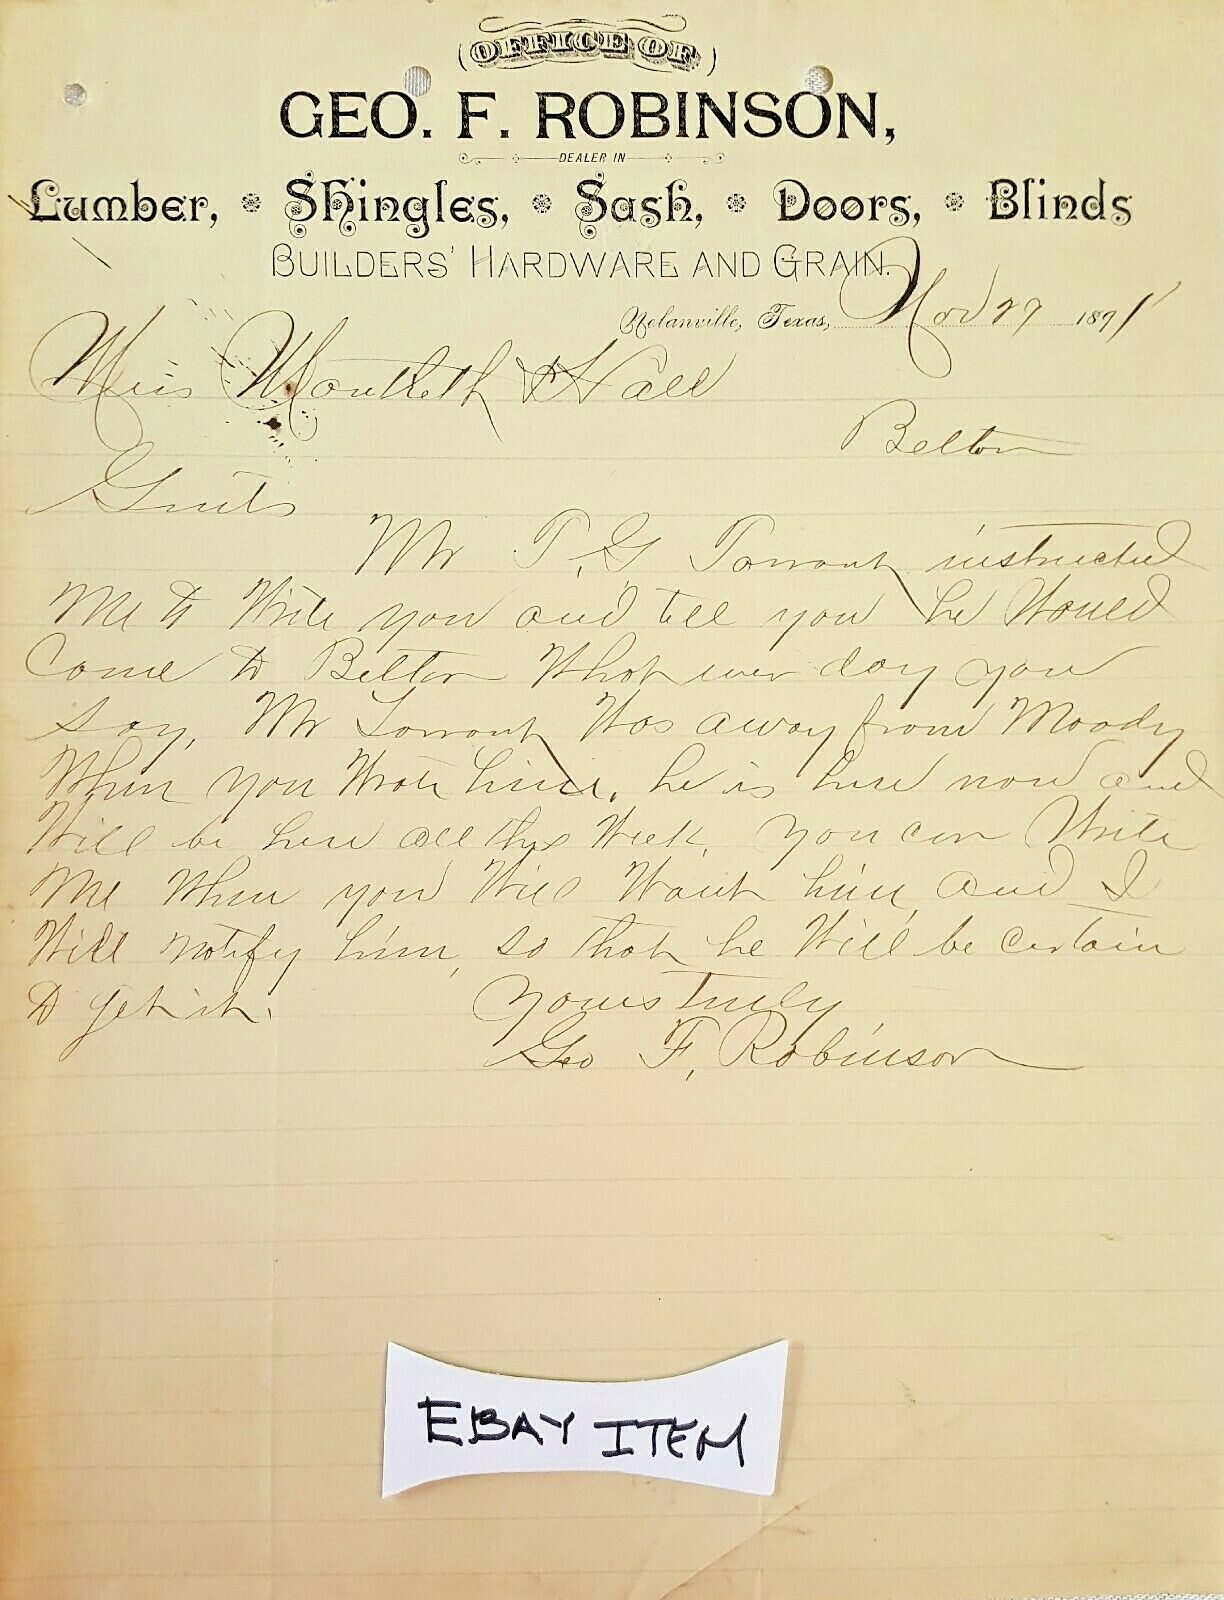 OFFICE OF
GEO. F. ROBINSON,
DEALER IN
Lumber, Shingles, Sash, Doors, Blinds
BUILDERS' HARDWARE AND GRAIN.
Nolanville, Texas, Nov 29 1891
Mess Monteith & Hall
Belton
Gents
Mr T. G. Tarrant instructed
Me to Write you and tell you he Would
Come to Belton What ever day you
Say, Mr Tarrant Was away from Moody
When you Wrote him. he is here now and
Will be here all this Week, you can Write
Me When you Will Want him, and I
Will notify him, so that he Will be certain
to get it.
Yours Truly
Geo F, Robinson
EBAY ITEM